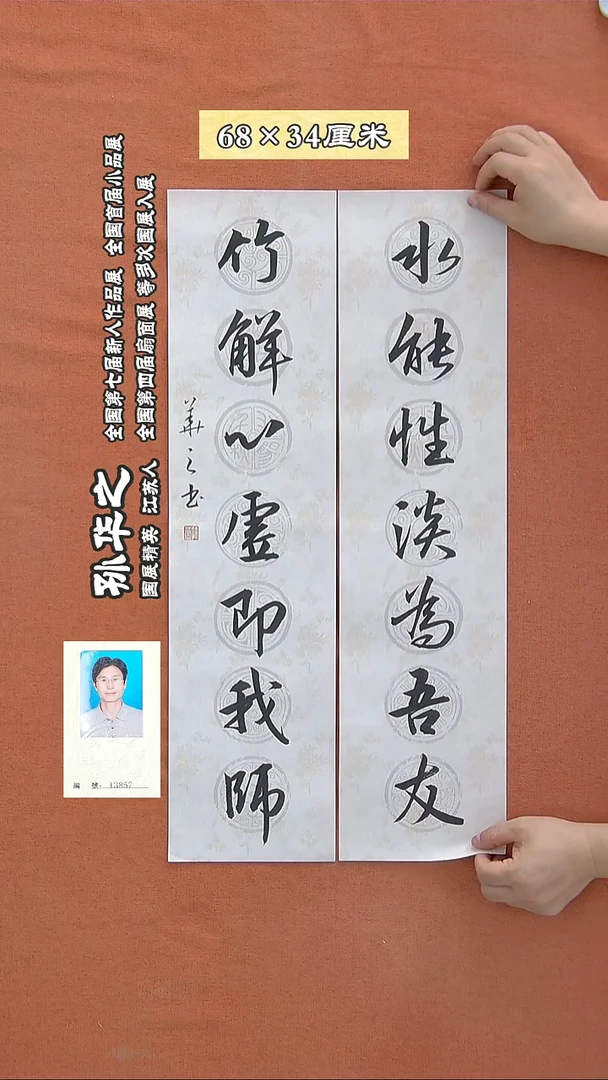 68×34厘米
水能性淡為吾友
竹解心虛即我師
華之书
孙华之
国展精英 江苏人
全国第七届新人作品展 全国首届小品展
全国第四届扇面展 等多次国展入展
編 號：13857